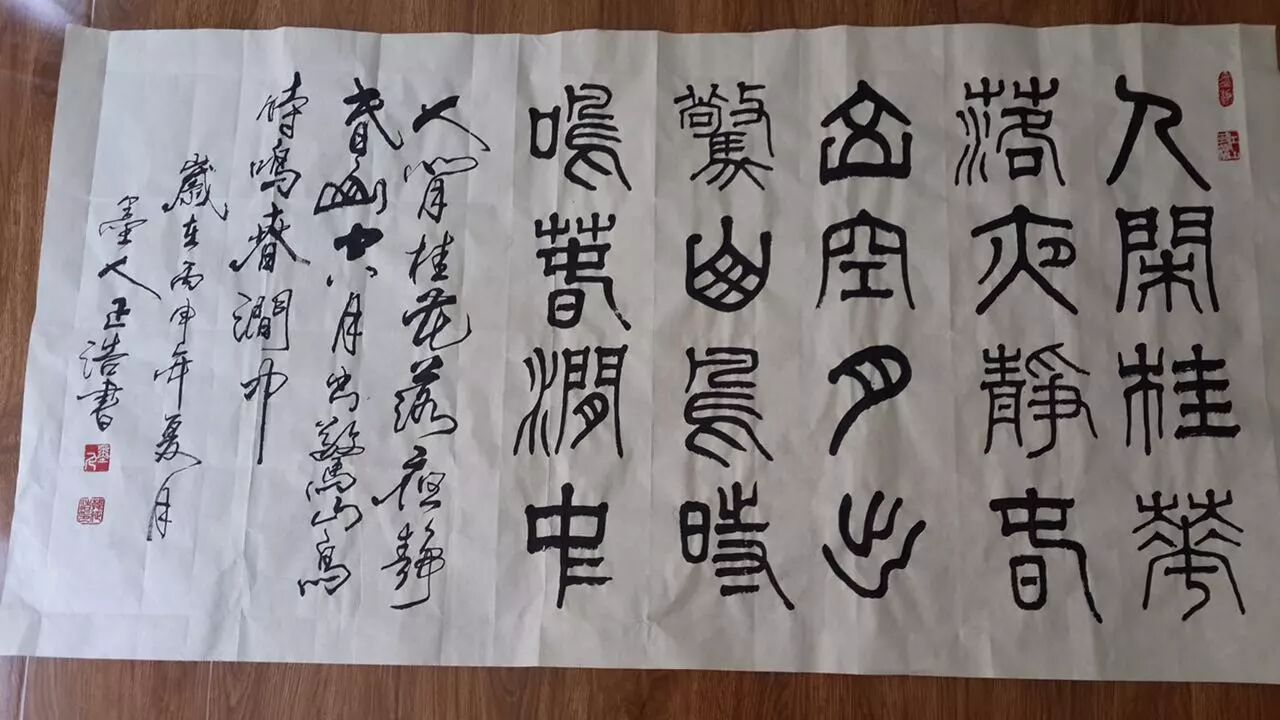 人閑桂華
落夜靜春
山空月出
驚山鳥時
鳴春澗中
人閒桂花落夜靜
春山空月出驚山鳥
時鳴春澗中
歲在丙申年夏月
墨人正浩書